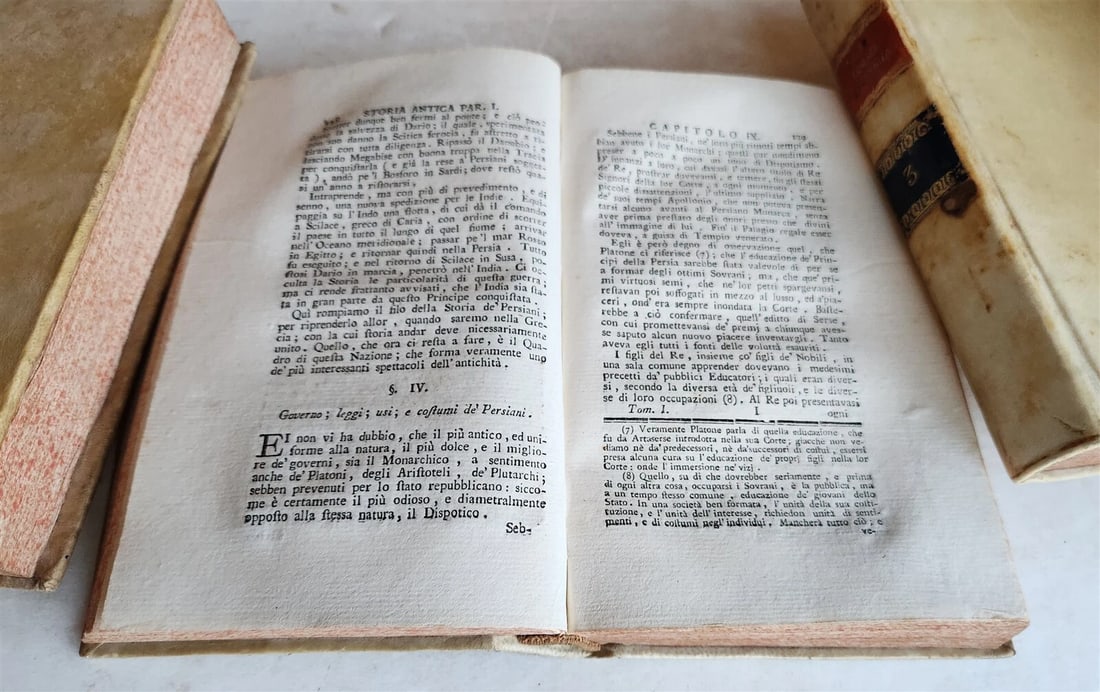 STORIA ANTICA PAR. I.
dunque ben fermi al ponte; e ciò
la salvezza di Dario; il quale, sperimentata
suo danno la Scitica ferocia, fu astretto a
rirarsi con tutta diligenza. Ripassò il Danubio
lasciando Megabise con buona truppa nella Tracia
per conquistarla (e già la rese a' Persiani
ta), andò pe'l Bosforo in Sardi; dove restò qua-
si un'anno a ristorarsi.
Intraprende, ma con più di prevedimento, e di
senno, una nuova spedizione per le Indie. Equi-
paggia su l'Indo una flotta, di cui dà il comando
a Scilace, greco di Caria, con ordine di scorrer
il paese in tutto il lungo di quel fiume; arrivar
nell'Oceano meridionale; passar pe'l mar Rosso
in Egitto; e ritornar quindi nella Persia. Tutto
fu eseguito; e nel ritorno di Scilace in Susa, po-
stosi Dario in marcia, penetrò nell'India. Ci oc-
culta la Storia le particolarità di questa guerra;
ma ci rende frattanto avvisati, che l'India sia sta-
ta in gran parte da questo Principe conquistata.
Quì rompiamo il filo della Storia de' Persiani,
per riprenderlo allor, quando saremo nella Gre-
cia; con la cui storia andar deve nicessariamente
unito. Quello, che ora ci resta a fare, è il Qua-
dro di questa Nazione; che forma veramente uno
de' più interessanti spettacoli dell'antichità.
§. IV.
Governo; leggi; usi; e costumi de' Persiani.
EI non vi ha dubbio, che il più antico, ed uni-
forme alla natura, il più dolce, e il miglio-
re de' governi, sia il Monarchico, a sentimento
anche de' Platoni, degli Aristoteli, de' Plutarchi;
sebben prevenuti per lo stato repubblicano: sicco-
me è certamente il più odioso, e diametralmente
opposto alla stessa natura, il Dispotico.
Seb-
CAPITOLO IX. 129
Sebbene i Persiani, ne' lor più rimoti tempi ab-
bian avuto i lor Monarchi; quelli par nondimeno
a poco a poco un tuono di Dispotismo
d'innanzi a loro, cui davasi l'alto titolo di Re
de' Re, prostrar dovevansi, e temere, fin gli stessi
Signori della lor Corte, a ogni momento, e per
piccole disattenzioni, l'ultimo supplizio. Narra
de' suoi tempi Apollonio, che non poteva presen-
tarsi alcuno avanti al Persiano Monarca, senza
aver prima prestato degli onori presso che divini
all'immagine di lui. Fin il Palagio regale esser
doveva, a guisa di Tempio venerato.
Egli è però degno di osservazione quel, che
Platone ci riferisce (7); che l'educazione de' Prin-
cipi della Persia sarebbe stata valevole di per se
a formar degli ottimi Sovrani; ma, che que' pri-
mi virtuosi semi, che ne' lor petti spargevansi,
restavan poi soffogati in mezzo al lusso, ed a' pia-
ceri, ond'era sempre inondata la Corte. Baste-
rebbe a ciò confermare, quell'editto di Serse,
con cui promettevansi de' premj a chiunque aves-
se saputo alcun nuovo piacere inventargli. Tanto
aveva egli tutti i fonti delle voluttà esauriti.
I figli del Re, insieme co' figli de' Nobili, in
una sala comune apprender dovevano i medesimi
precetti da' pubblici Educatori; i quali eran diver-
si, secondo la diversa età de' figliuoli, e le diver-
se di loro occupazioni (8). Al Re poi presentavasi
Tom. I. I ogni
(7) Veramente Platone parla di quella educazione, che
fu da Artaserse introdotta nella sua Corte; giacchè non ve-
diamo nè da' predecessori, nè da' successori di costui, essersi
presa alcuna cura su l'educazione de' proprj figli nella lor
Corte: onde l'immersione ne' vizj.
(8) Quello, su di che dovrebber seriamente, e prima
di ogni altra cosa, occuparsi i Sovrani, è la pubblica, ma
a un tempo stesso comune, educazione de' giovani dello
Stato. In una società ben formata, l'unità della sua costi-
tuzione, e l'unità dell'interesse, richiedon unità di senti-
menti, e di costumi negl'individui. Mancherà tutto ciò; e
ve-
3